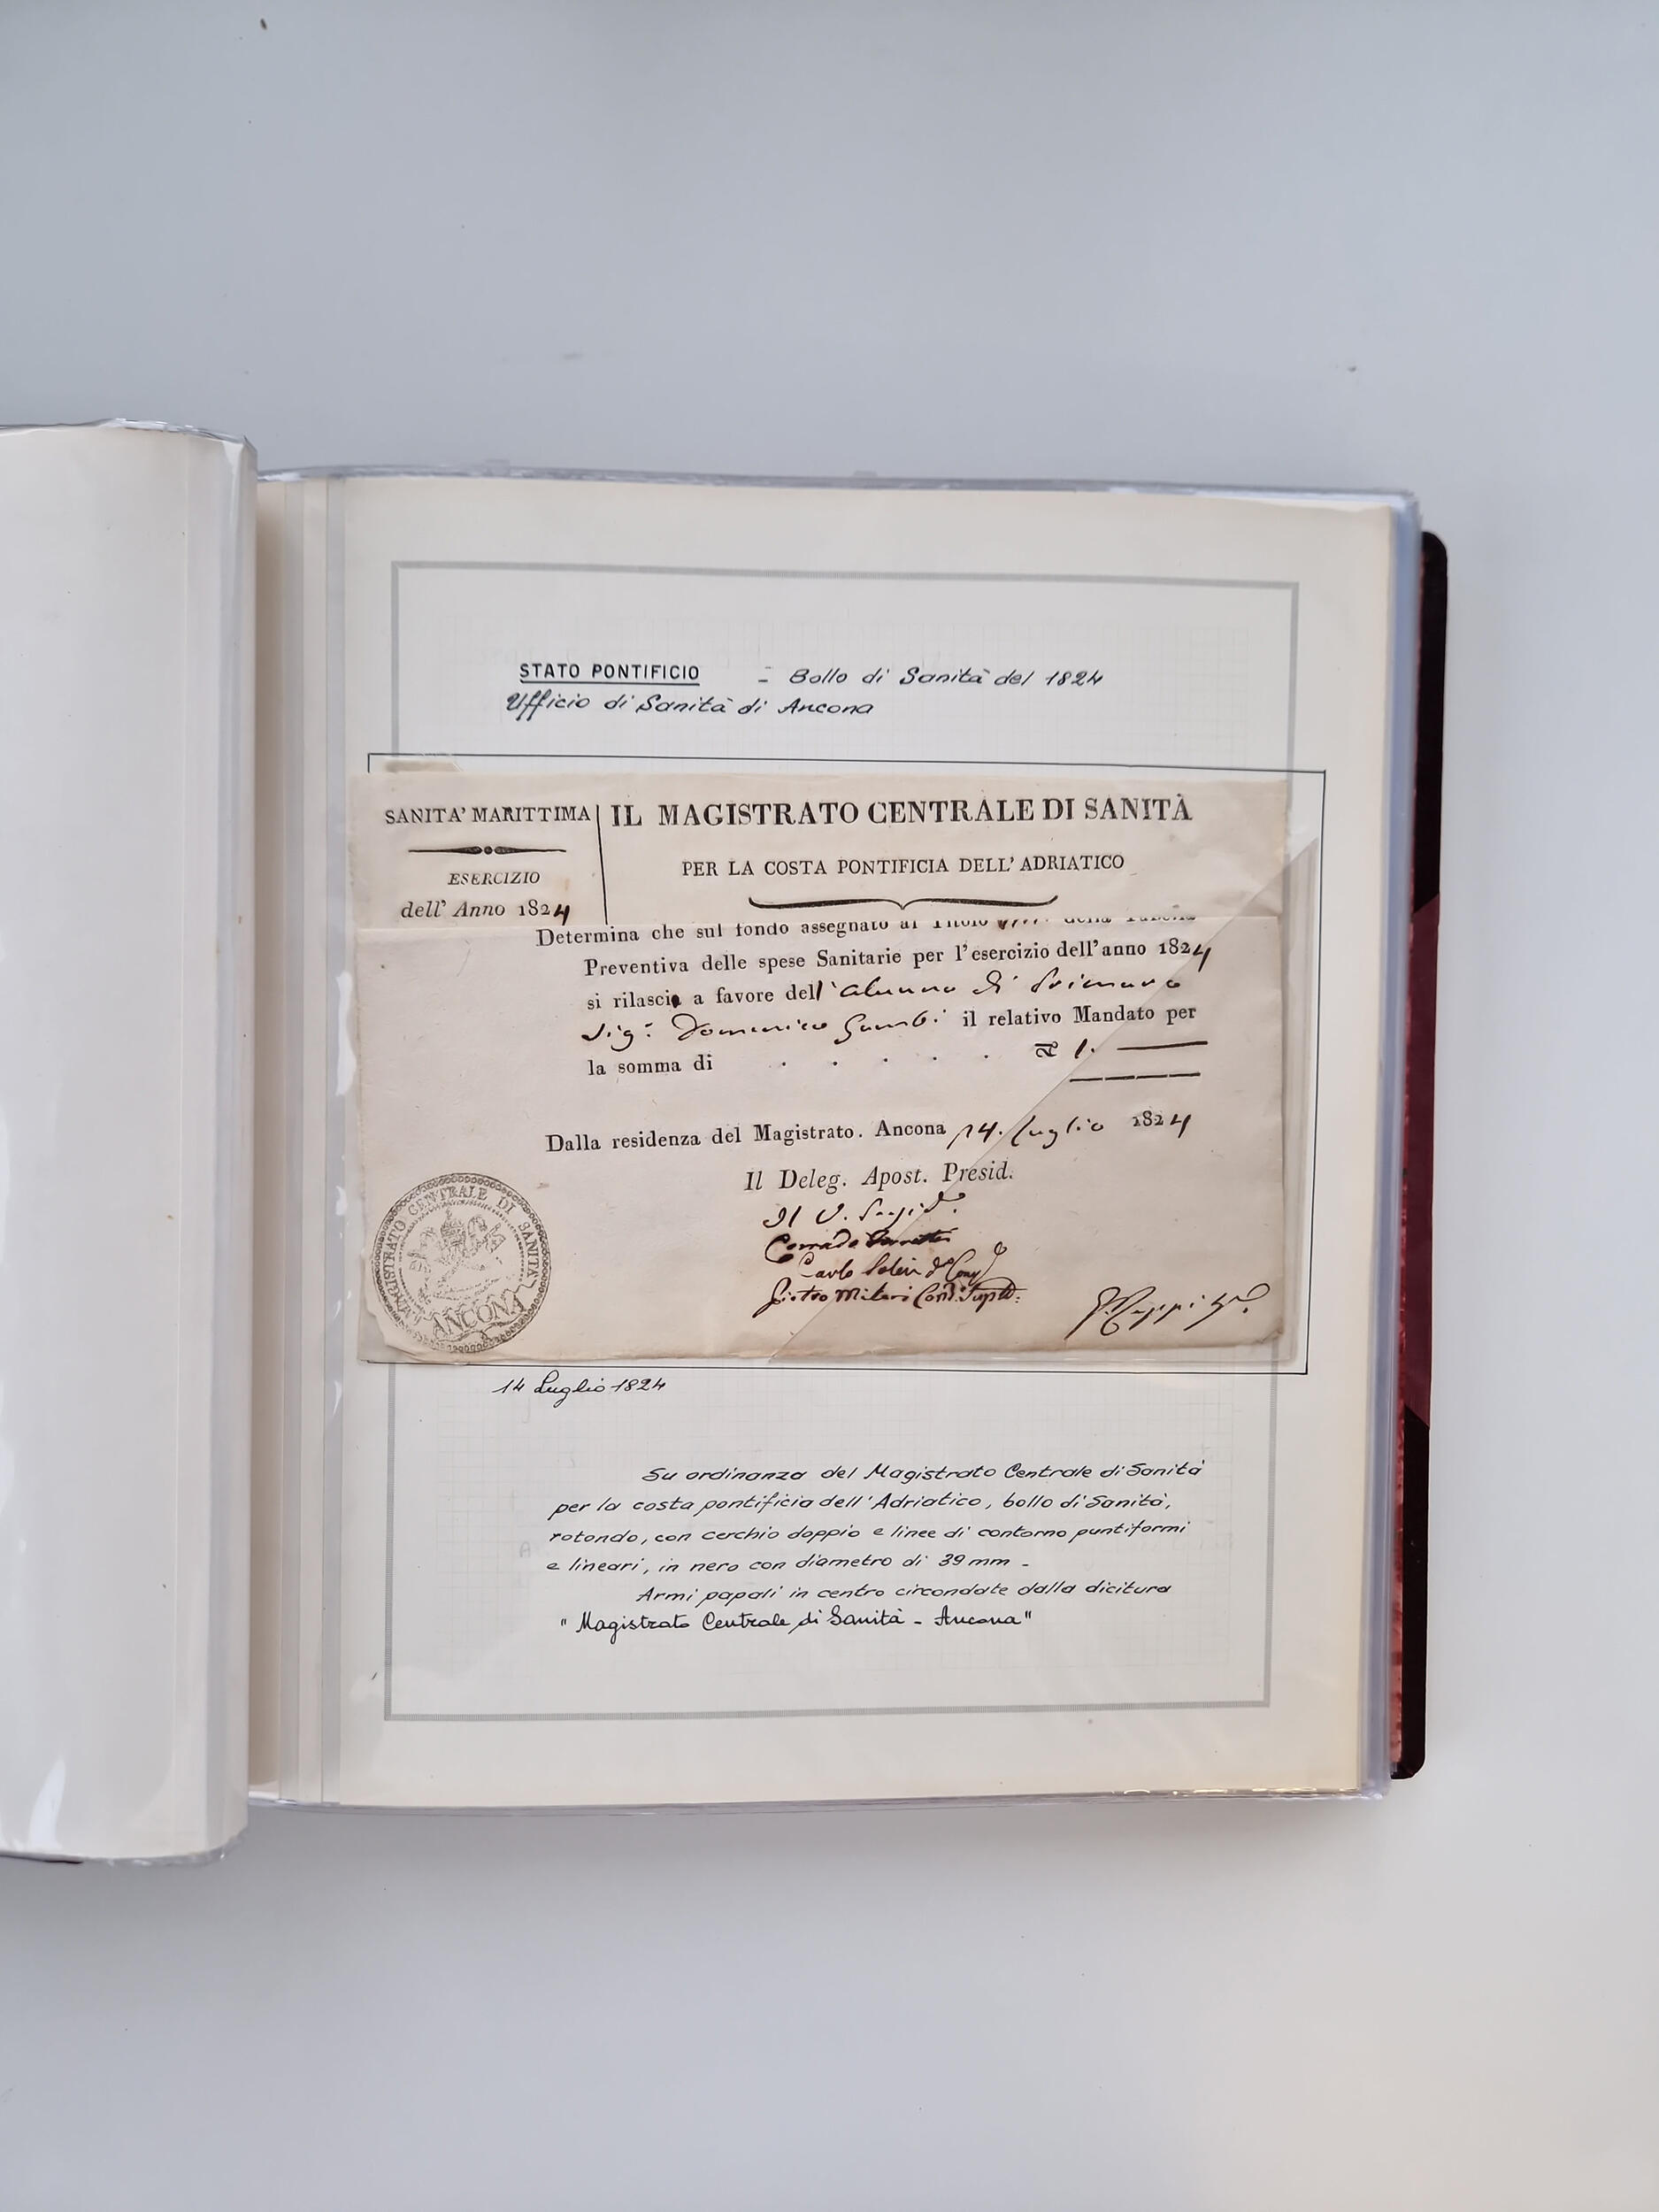 STATO PONTIFICIO - Bollo di Sanità del 1824
Ufficio di Sanità di Ancona
SANITA' MARITTIMA
ESERCIZIO
dell' Anno 1824
IL MAGISTRATO CENTRALE DI SANITÀ
PER LA COSTA PONTIFICIA DELL' ADRIATICO
Determina che sul fondo assegnato al Titolo della Tabella
Preventiva delle spese Sanitarie per l'esercizio dell'anno 1824
si rilascia a favore dell' alunno di
Sig.r Domenico il relativo Mandato per
la somma di . . . . . 1. —
Dalla residenza del Magistrato. Ancona 14. luglio 1824
Il Deleg. Apost. Presid.
Il V.
Corrado
Carlo
Pietro Milesi
MAGISTRATO CENTRALE DI SANITA
ANCONA
14 Luglio 1824
Su ordinanza del Magistrato Centrale di Sanità
per la costa pontificia dell'Adriatico, bollo di Sanità,
rotondo, con cerchio doppio e linee di contorno puntiformi
e lineari, in nero con diametro di 39 mm -
Armi papali in centro circondate dalla dicitura
"Magistrato Centrale di Sanità - Ancona"